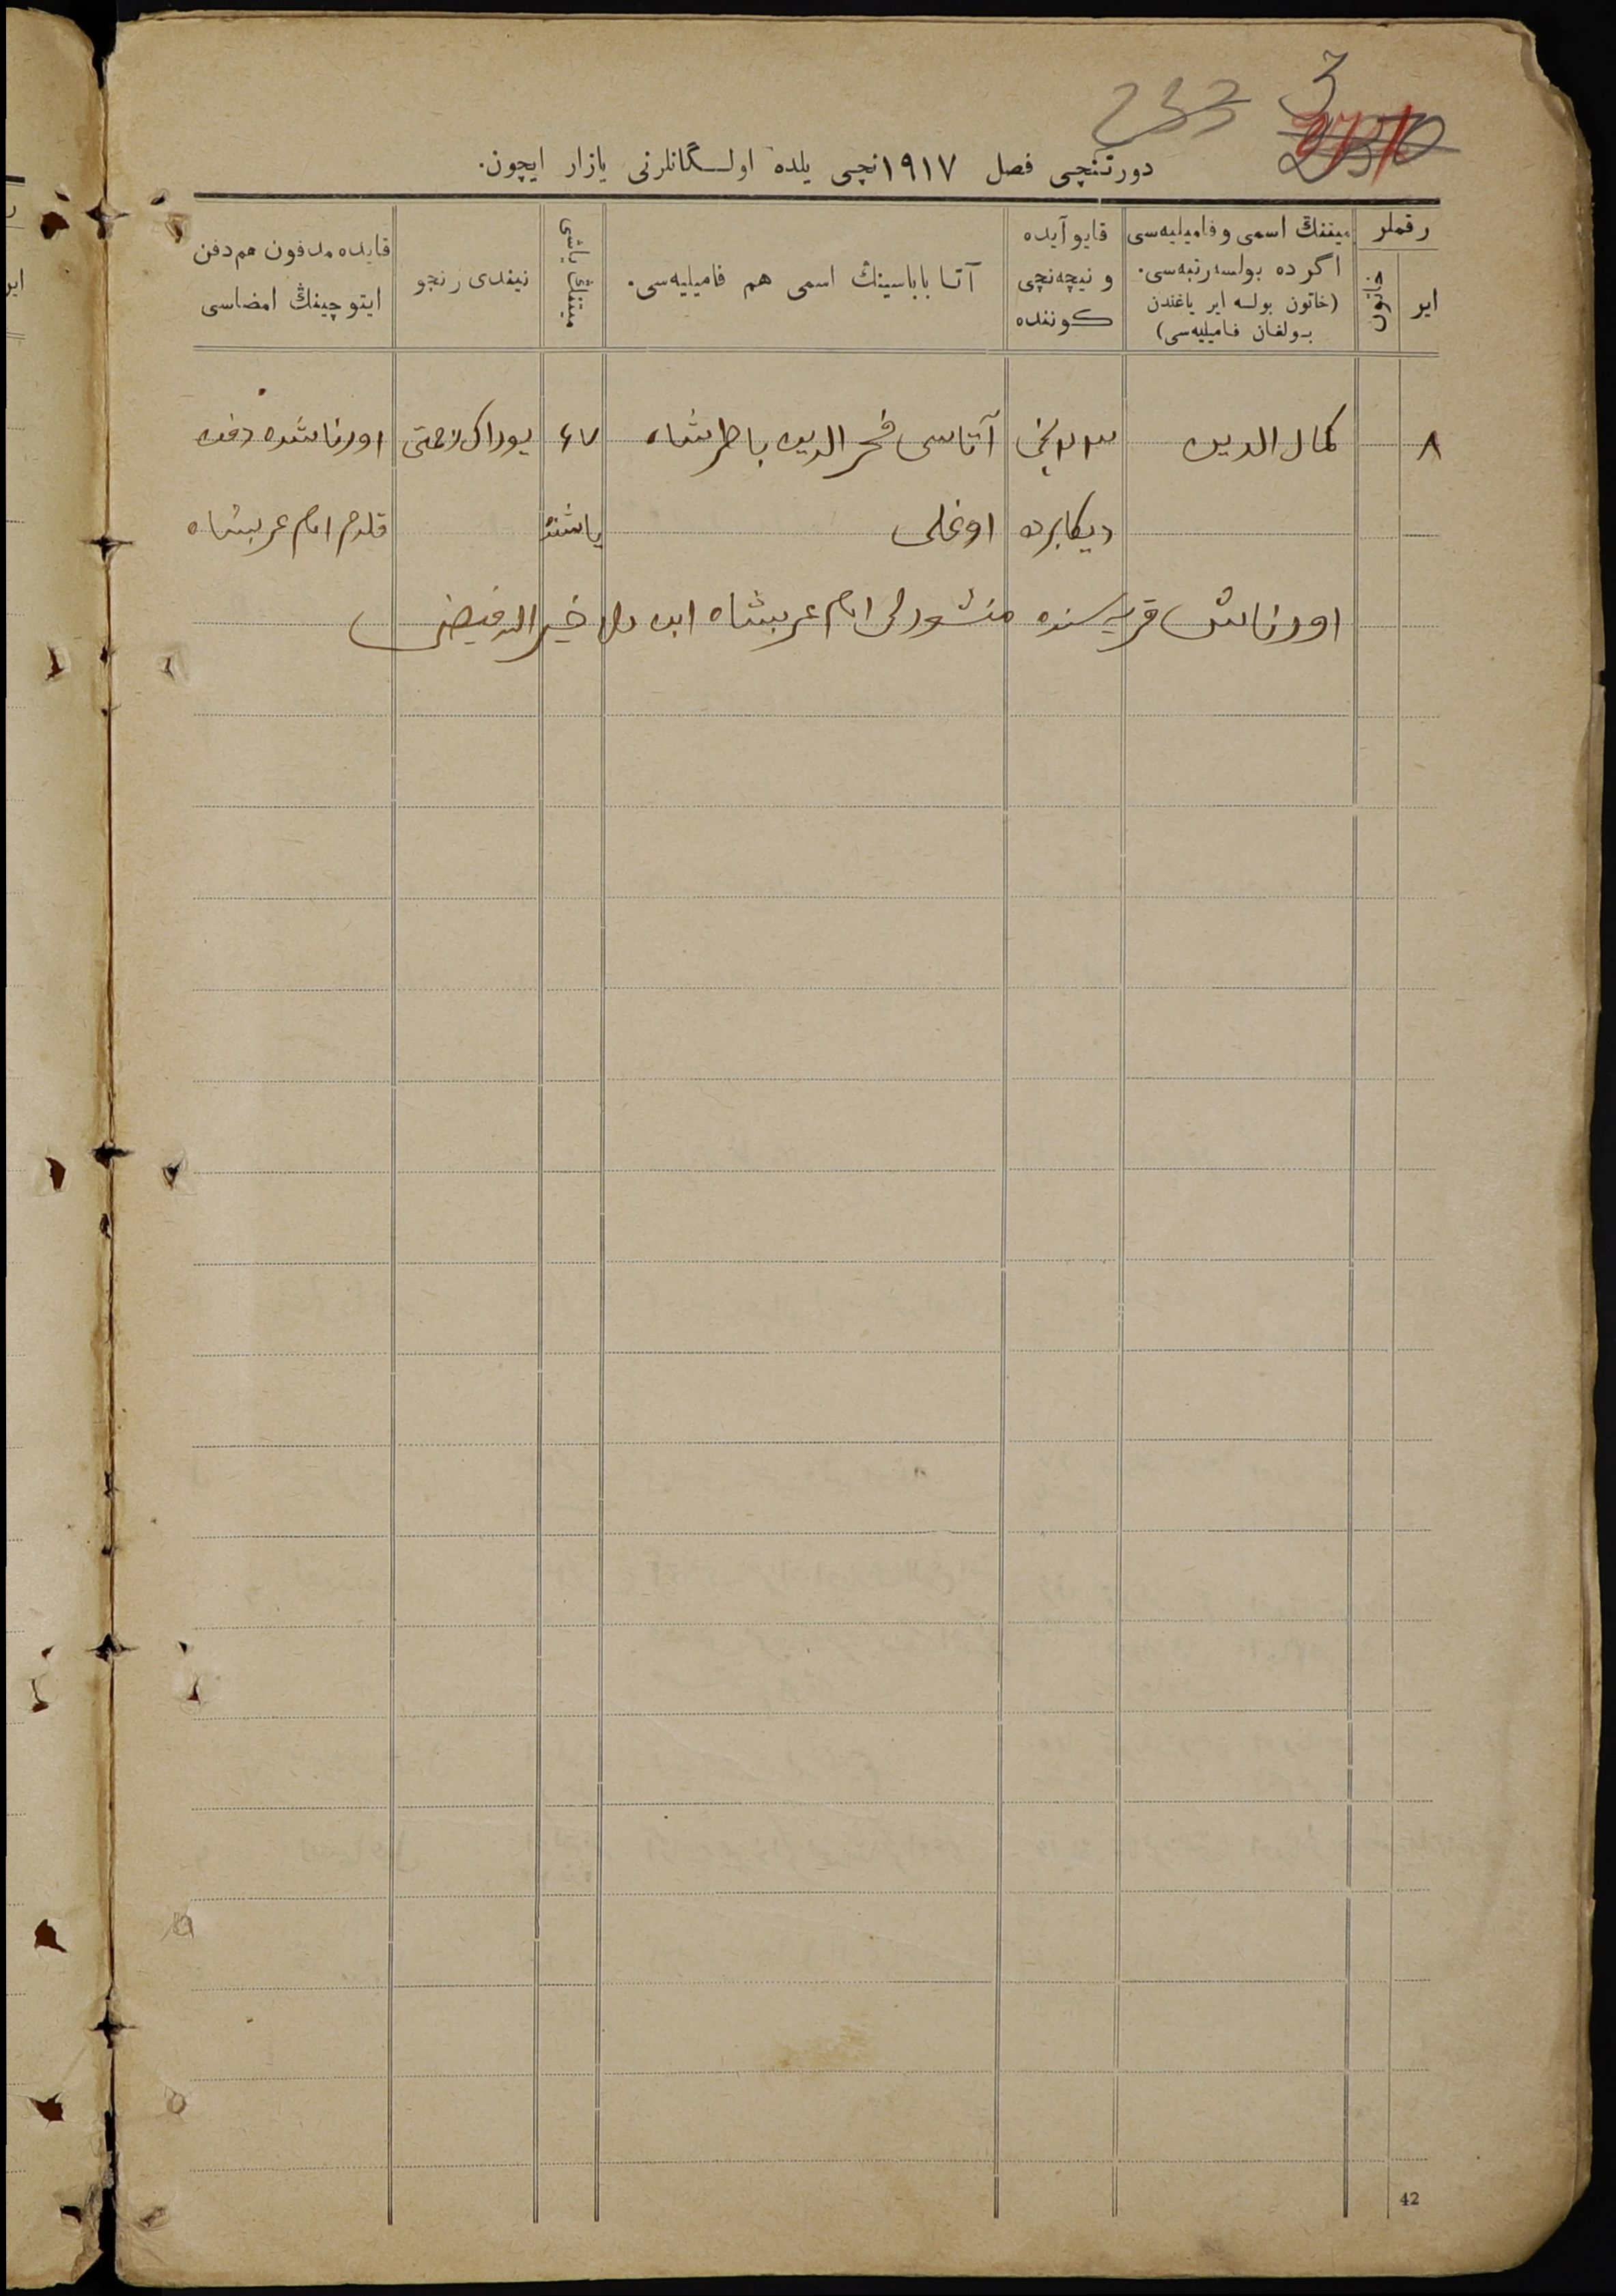 233 3
دورتنچی فصل ۱۹۱۷نچی یلده اولگانلرنی یازار ایچون.
رقملر
ایر
خاتون
میتننڭ اسمی و فامیلیه‌سی
اگر ده بولسه رتبه‌سی.
(خاتون بولسه ایر یاغندن
بولغان فامیلیه‌سی)
قایو آیده
و نیچه‌نچی
کوننده
آتا باباسیننڭ اسمی هم فامیلیه‌سی.
میتننڭ یاشی
نیندی رنجو
قایده مدفون هم دفن
ایتوچیننڭ امضاسی
۸ کمال الدین نچی آتاسی فخر الدین باطرشاه ۶۷ یوراک زحمتی اورناشده دفن
دیکابرده اوغلی یاشنده قلدم امام عربشاه
اورناش قریه‌سنده منشورلی امام عربشاه ابن خیر الله فیضی
42